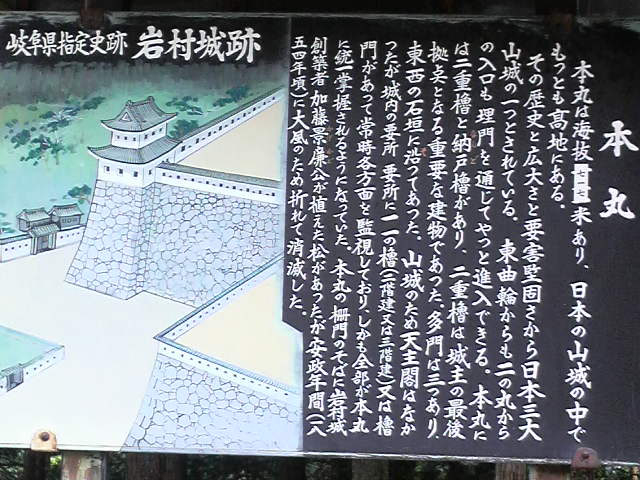 岐阜県指定史跡 岩村城跡
本丸
本丸は海抜
米あり、日本の山城の中で
もっとも高地にある。
その歴史と広大さと要害堅固さから日本三大
山城の一つとされている。東曲輪からも二の丸から
の入口も埋門を通じてやっと進入できる。本丸に
は二重櫓と納戸櫓があり、二重櫓は城主の最後
拠点となる重要な建物であった。多門は三つあり、
東西の石垣に沿ってあった。山城のため天主閣はなか
ったが城内の要所要所に一一の櫓(二階建又は三階建)又は櫓
門があって常時各方面を監視しており、しかも全部が本丸
に統一掌握されるようになっていた。本丸の柵門のそばに岩村城
創築者加藤景廉公が植えた松があったが安政年間(一八
五四年頃)に大風のため折れて消滅した。